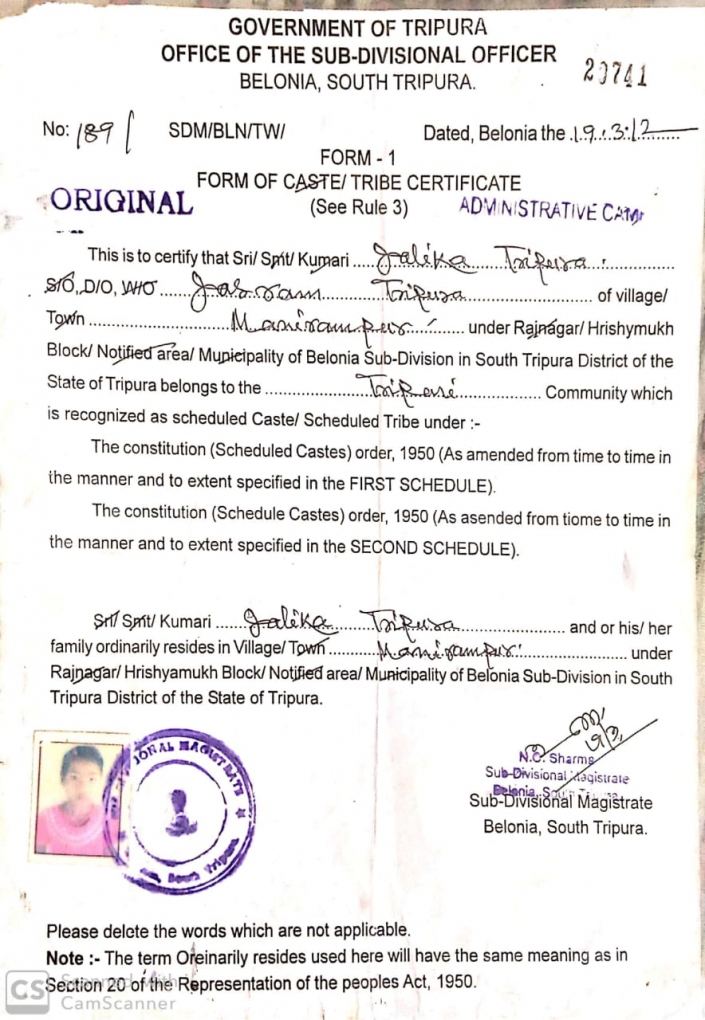 GOVERNMENT OF TRIPURA
OFFICE OF THE SUB-DIVISIONAL OFFICER
BELONIA, SOUTH TRIPURA.
20741
No: 189/ SDM/BLN/TW/ Dated, Belonia the 19.3.12
FORM - 1
FORM OF CASTE/ TRIBE CERTIFICATE
ORIGINAL (See Rule 3) ADMINISTRATIVE CAMP
This is to certify that Sri/ Smt/ Kumari Jalika Tripura
S/O, D/O, W/O Jasram Tripura of village/
Town Manirampur under Rajnagar/ Hrishymukh
Block/ Notified area/ Municipality of Belonia Sub-Division in South Tripura District of the
State of Tripura belongs to the Tripuri Community which
is recognized as scheduled Caste/ Scheduled Tribe under :-
The constitution (Scheduled Castes) order, 1950 (As amended from time to time in
the manner and to extent specified in the FIRST SCHEDULE).
The constitution (Schedule Castes) order, 1950 (As asended from tiome to time in
the manner and to extent specified in the SECOND SCHEDULE).
Sri/ Smt/ Kumari Jalika Tripura and or his/ her
family ordinarily resides in Village/ Town Manirampur under
Rajnagar/ Hrishyamukh Block/ Notified area/ Municipality of Belonia Sub-Division in South
Tripura District of the State of Tripura.
19/3
N.C. Sharma
Sub-Divisional Magistrate
Belonia, South
Sub-Divisional Magistrate
Belonia, South Tripura.
MAGISTRATE
South Tripura
Please delete the words which are not applicable.
Note :- The term Oreinarily resides used here will have the same meaning as in
Section 20 of the Representation of the peoples Act, 1950.
CS Scanned with
CamScanner